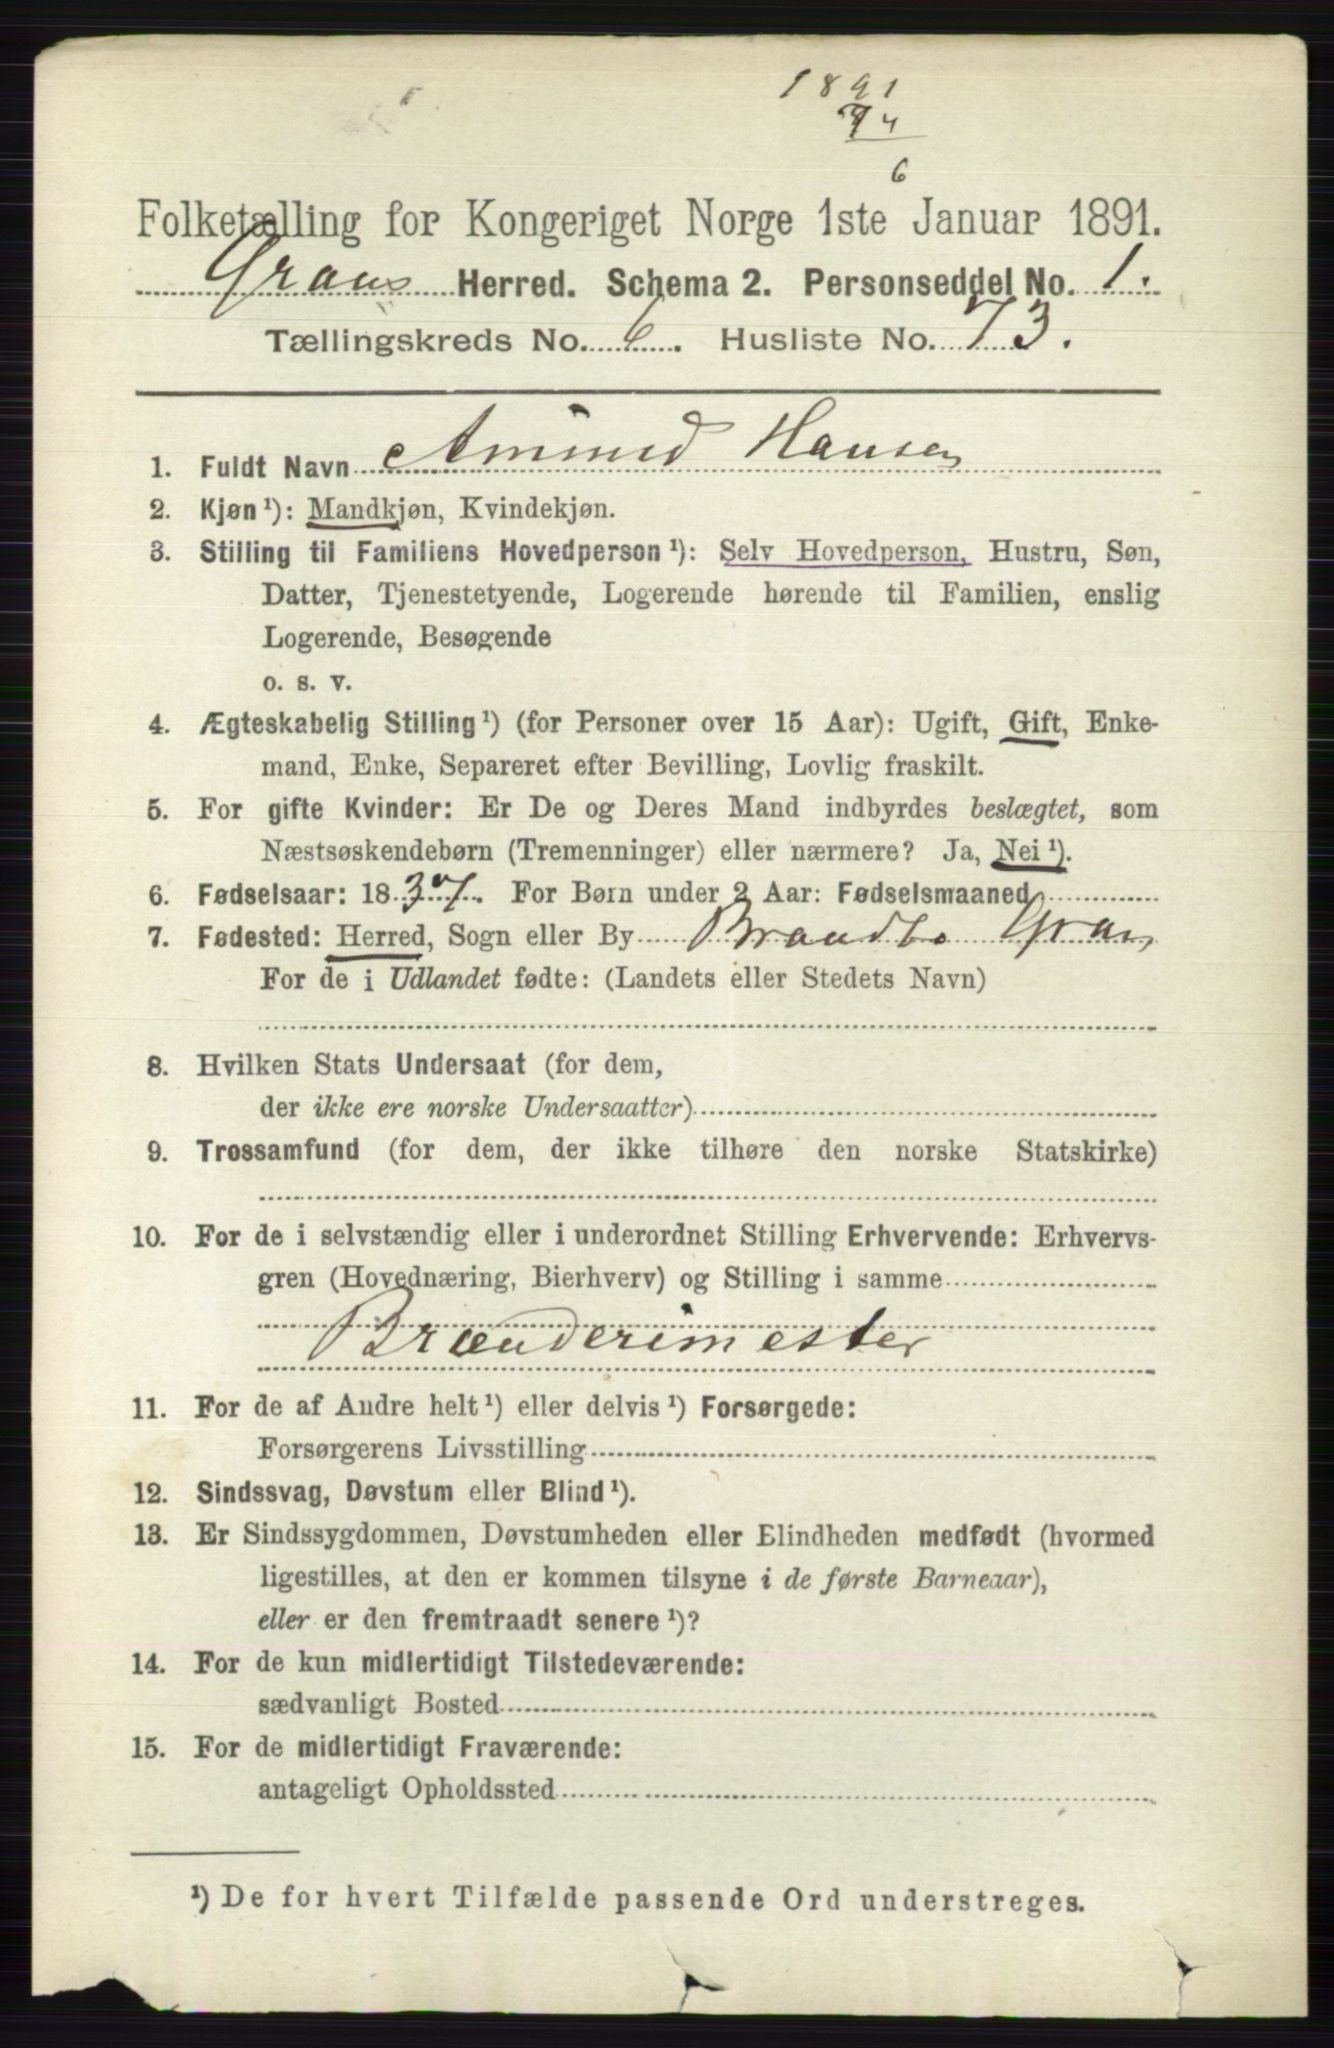 1891
74
6
Folketælling for Kongeriget Norge 1ste Januar 1891.
Grans Herred. Schema 2. Personseddel No. 1.
Tællingskreds No. 6. Husliste No. 73.
1. Fuldt Navn Amund Hansen
2. Kjøn ¹): Mandkjøn, Kvindekjøn.
3. Stilling til Familiens Hovedperson ¹): Selv Hovedperson, Hustru, Søn,
Datter, Tjenestetyende, Logerende hørende til Familien, enslig
Logerende, Besøgende
o. s. v.
4. Ægteskabelig Stilling ¹) (for Personer over 15 Aar): Ugift, Gift, Enke-
mand, Enke, Separeret efter Bevilling, Lovlig fraskilt.
5. For gifte Kvinder: Er De og Deres Mand indbyrdes beslægtet, som
Næstsøskendebørn (Tremenninger) eller nærmere? Ja, Nei ¹).
6. Fødselsaar: 1837. For Børn under 2 Aar: Fødselsmaaned
7. Fødested: Herred, Sogn eller By Brandbo Gran
For de i Udlandet fødte: (Landets eller Stedets Navn)
8. Hvilken Stats Undersaat (for dem,
der ikke ere norske Undersaatter)
9. Trossamfund (for dem, der ikke tilhøre den norske Statskirke)
10. For de i selvstændig eller i underordnet Stilling Erhvervende: Erhvervs-
gren (Hovednæring, Bierhverv) og Stilling i samme
Brænderimester
11. For de af Andre helt ¹) eller delvis ¹) Forsørgede:
Forsørgerens Livsstilling
12. Sindssvag, Døvstum eller Blind ¹).
13. Er Sindssygdommen, Døvstumheden eller Blindheden medfødt (hvormed
ligestilles, at den er kommen tilsyne i de første Barneaar),
eller er den fremtraadt senere ¹)?
14. For de kun midlertidigt Tilstedeværende:
sædvanligt Bosted
15. For de midlertidigt Fraværende:
antageligt Opholdssted
¹) De for hvert Tilfælde passende Ord understreges.